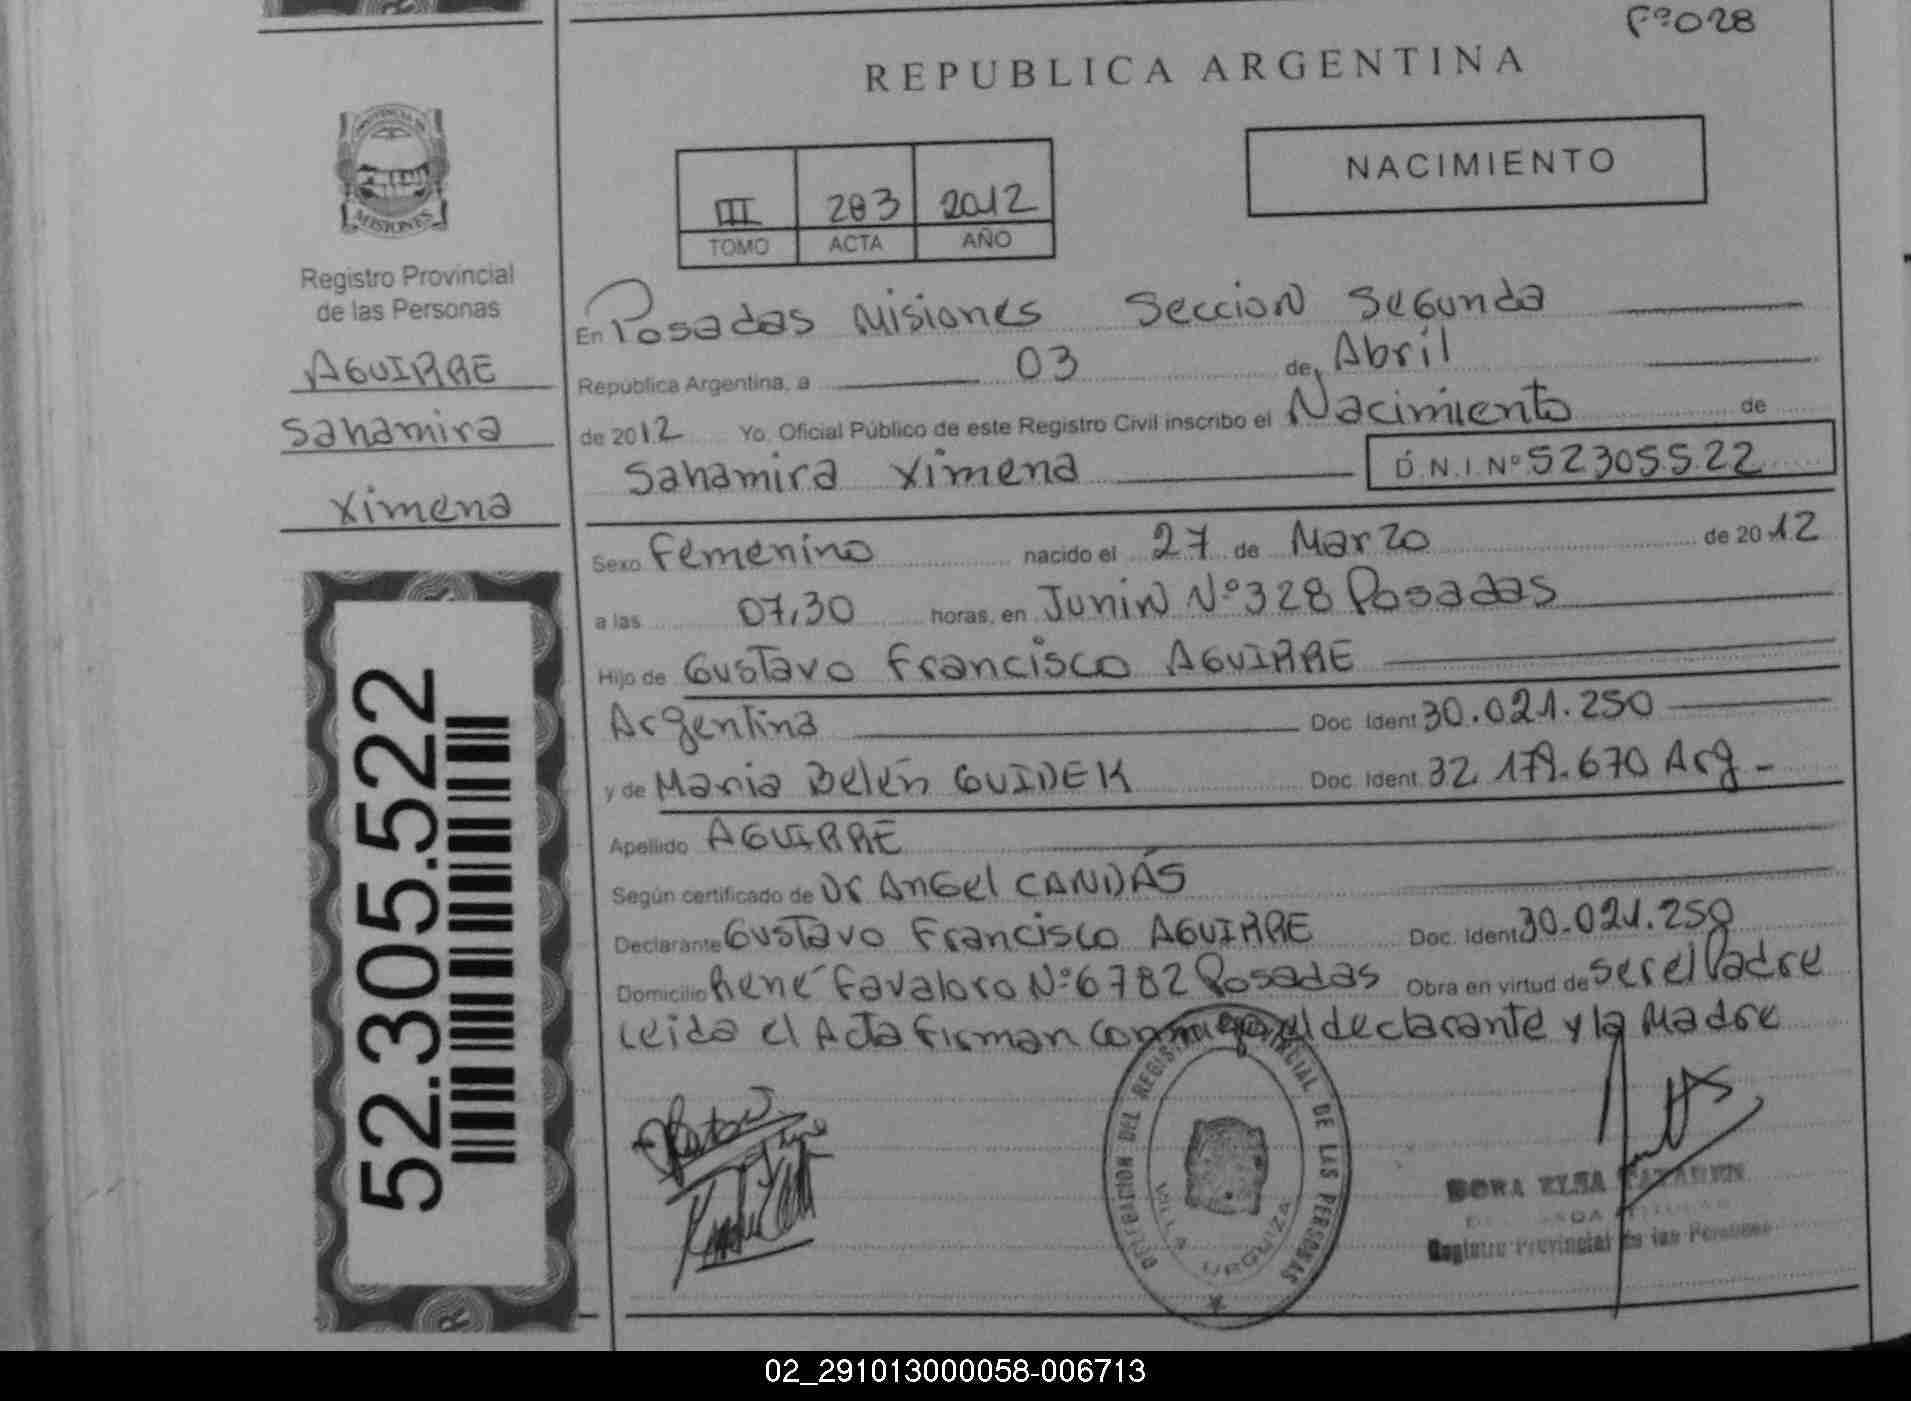 Fº028
REPUBLICA ARGENTINA
NACIMIENTO
III 283 2012
TOMO ACTA AÑO
MISIONES
Registro Provincial
de las Personas
AGUIRRE
Sahamira
Ximena
52.305.522
En Posadas Misiones Seccion Segunda
Republica Argentina, a 03 de Abril
de 2012 Yo, Oficial Público de este Registro Civil inscribo el Nacimiento de
Sahamira Ximena D.N.I.Nº 52305522
Sexo Femenino nacido el 27 de Marzo de 2012
a las 07,30 horas, en Junin Nº328 Posadas
Hijo de Gustavo Francisco AGUIRRE
Argentina Doc Ident 30.021.250
y de Maria Belén GUIDEK Doc Ident. 32.179.670 Arg -
Apellido AGUIRRE
Según certificado de Dr Angel CANDÁS
Declarante Gustavo Francisco AGUIRRE Doc. Ident 30.021.250
Domicilio René Favaloro Nº6782 Posadas Obra en virtud de ser el Padre
Leida el Acta firman conmigo el declarante y la Madre
DELEGACION DEL REGISTRO PROVINCIAL DE LAS PERSONAS
VILLA URQUIZA
DORA ELSA
Registro Provincial de las Personas
02_291013000058-006713